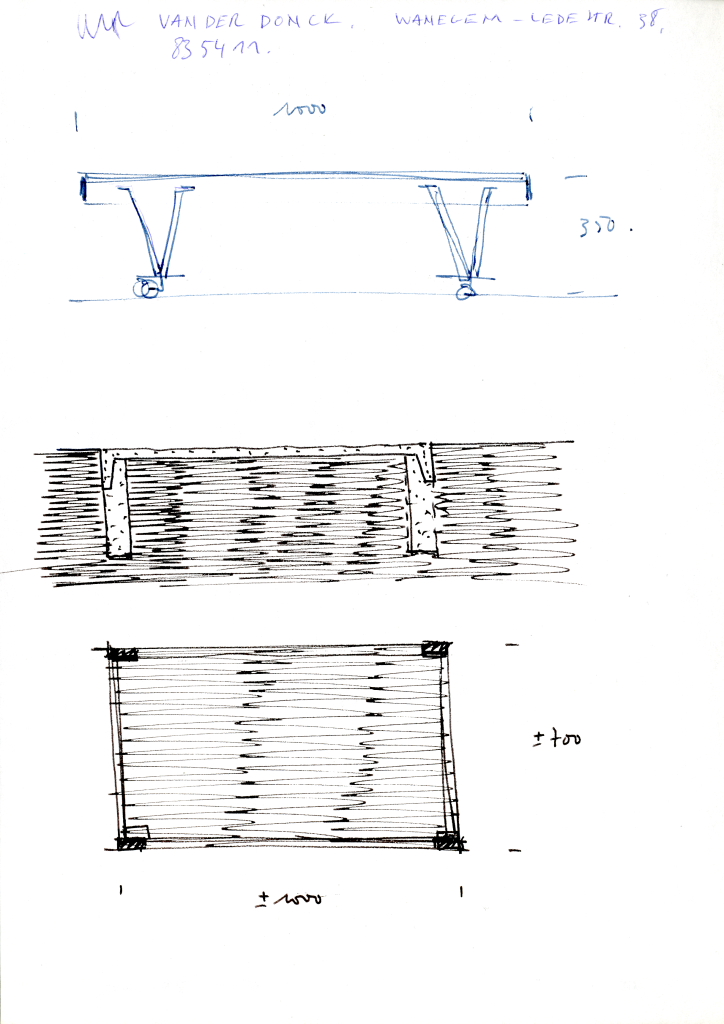 MR VAN DER DONCK. WANEGEM-LEDE STR. 38,
83 54 11.
1000
350.
± 700
± 1000